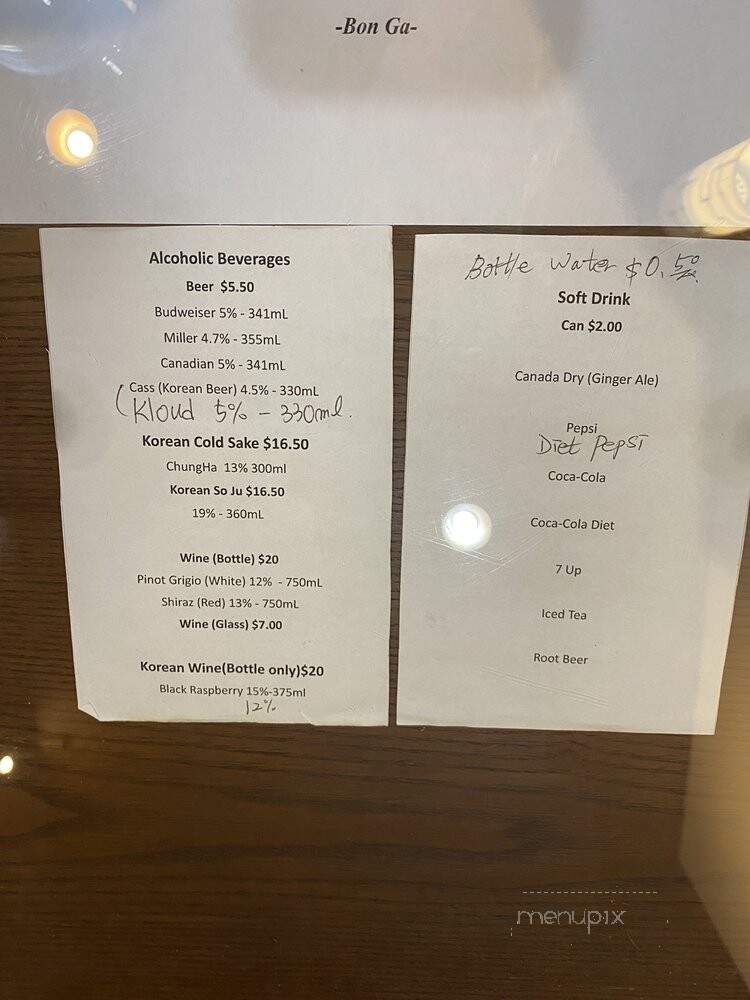 -Bon Ga-
Alcoholic Beverages
Beer $5.50
Budweiser 5% - 341mL
Miller 4.7% - 355mL
Canadian 5% - 341mL
Cass (Korean Beer) 4.5% - 330mL
(Kloud 5% - 330ml.
Korean Cold Sake $16.50
ChungHa 13% 300ml
Korean So Ju $16.50
19% - 360mL
Wine (Bottle) $20
Pinot Grigio (White) 12% - 750mL
Shiraz (Red) 13% - 750mL
Wine (Glass) $7.00
Korean Wine(Bottle only)$20
Black Raspberry 15%-375ml
12%
Bottle Water $0.50
Soft Drink
Can $2.00
Canada Dry (Ginger Ale)
Pepsi
Diet Pepsi
Coca-Cola
Coca-Cola Diet
7 Up
Iced Tea
Root Beer
menupix